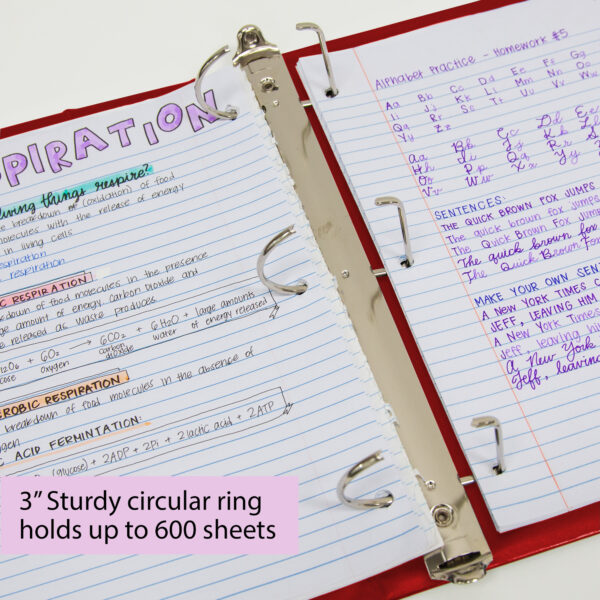 PIRATION
living things respire?
breakdown of (oxidation) of food
molecules with the release of energy
in living cells
respiration
respiration
C RESPIRATION
down of food molecules in the presence
ge amount of energy. Carbon Dioxide and
e released as waste produces
+ 6O₂ → 6CO₂ + 6H₂O + large amounts
ose oxygen carbon dioxide water of energy released
EROBIC RESPIRATION
breakdown of food molecules in the absence of
gen
C ACID FERMINTATION:
(glucose) + 2ADP + 2Pi → 2 lactic acid + 2ATP
Alphabet Practice - Homework #5
Aa Bb Cc Dd Ee Ff Gg
Ii Jj Kk Ll Mm Nn Oo
Qq Rr Ss Tt Uu Vv W
Yy Zz
Aa Bb Cc Dd Ee
Hh Ii Jj Kk Ll
Oo Pp Qq Rr Ss
Vv Ww Xx Yy
SENTENCES:
THE QUICK BROWN FOX JUMPS
The quick brown fox jumps
The Quick Brown Fox Jumps
The quick brown fox
The Quick Brown Fox
MAKE YOUR OWN SENT
A NEW YORK TIMES C
JEFF, LEAVING HIM
A New York Times
Jeff, leaving him
A New York
Jeff, leaving
3” Sturdy circular ring
holds up to 600 sheets